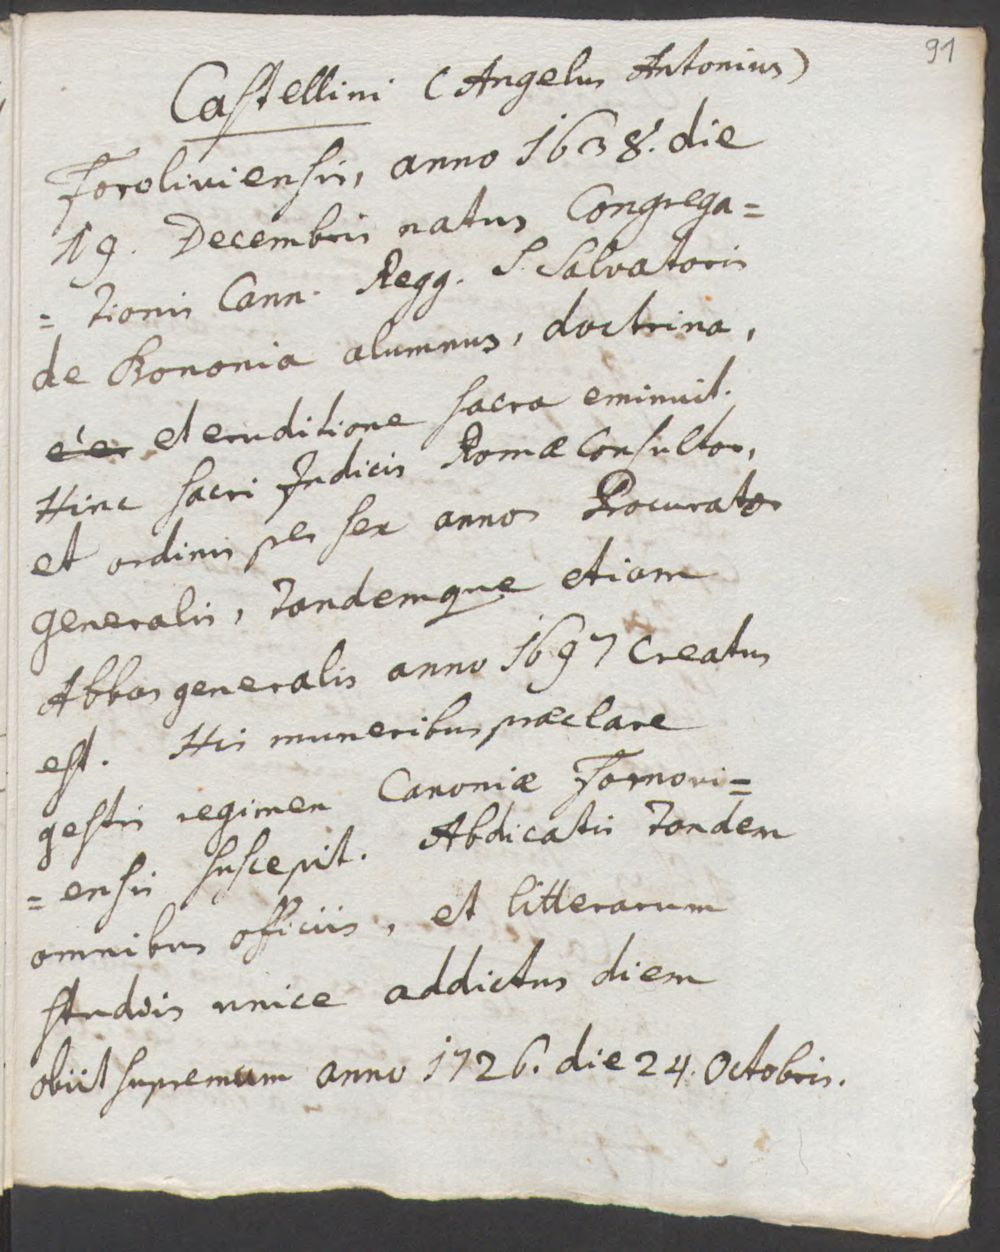 91
Castellini (Angelus Antonius)
Foroliviensis, anno 1638. die
19. Decembris natus Congrega=
=tionis Cann. Regg. S. Salvatoris
de Bononia alumnus, doctrina,
et eruditione sacra eminuit.
Hinc sacri Indicis Romæ Consultor,
et ordinis per sex annos Procurator
generalis, tandemque etiam
Abbas generalis anno 1697 creatus
est. His muneribus præclare
gestis regimen Canoniæ Fornovi=
=ensis suscepit. Abdicatis tandem
omnibus officiis, et litterarum
studiis unice addictus diem
obiit supremum anno 1726. die 24. Octobris.